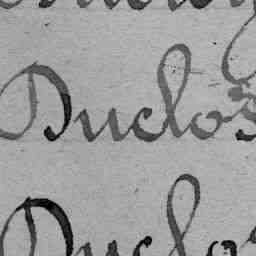 Duclos
Duclos